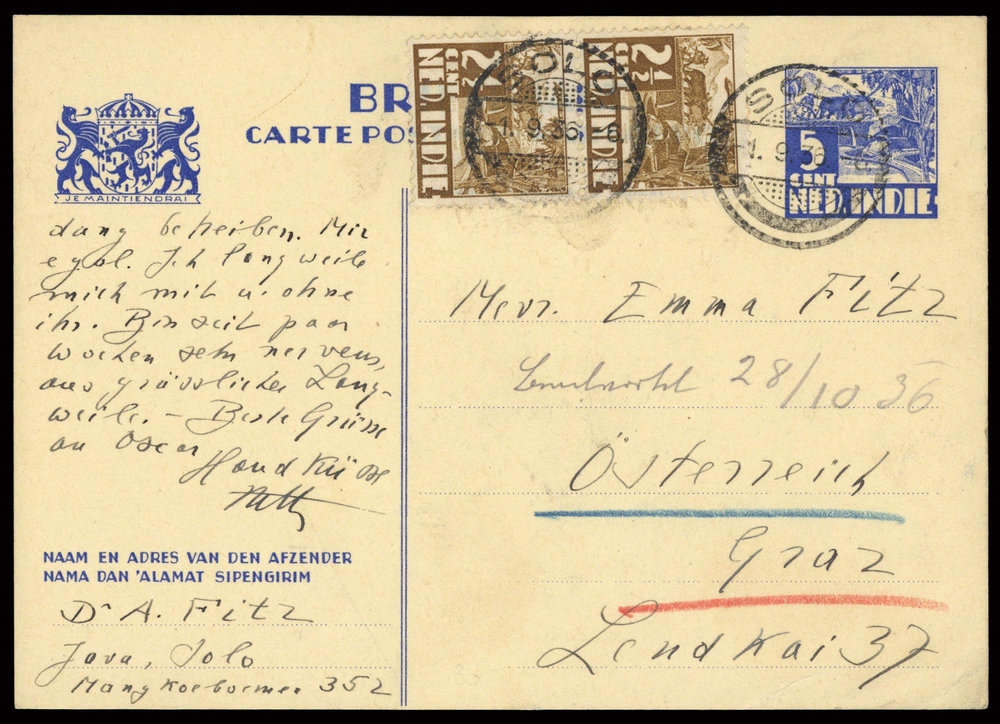 BR
CARTE POS
JE MAINTIENDRAI
2½ CENT
NED. INDIE
2½ CENT
NED. INDIE
SOLO
1.9.36.-6
SOLO
1.9.36
5
CENT
NED. INDIE
dang betreiben. Mir
egal. Ich langweile
mich mit u. ohne
ihr. Bin seit paar
Wochen sehr nervens,
aus grässlicher Lang-
weile. – Beste Grüsse
an Oscar
Handküsse
Mevr. Emma Fitz
28/10 36
Österreich
Graz
Lendkai 37
NAAM EN ADRES VAN DEN AFZENDER
NAMA DAN 'ALAMAT SIPENGIRIM
Dr A. Fitz
Java, Solo
Mangkoeboemen 352